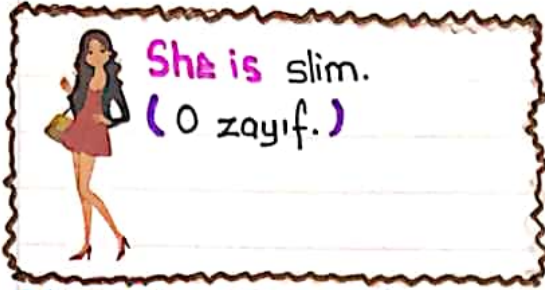 She is slim.
(O zayıf.)